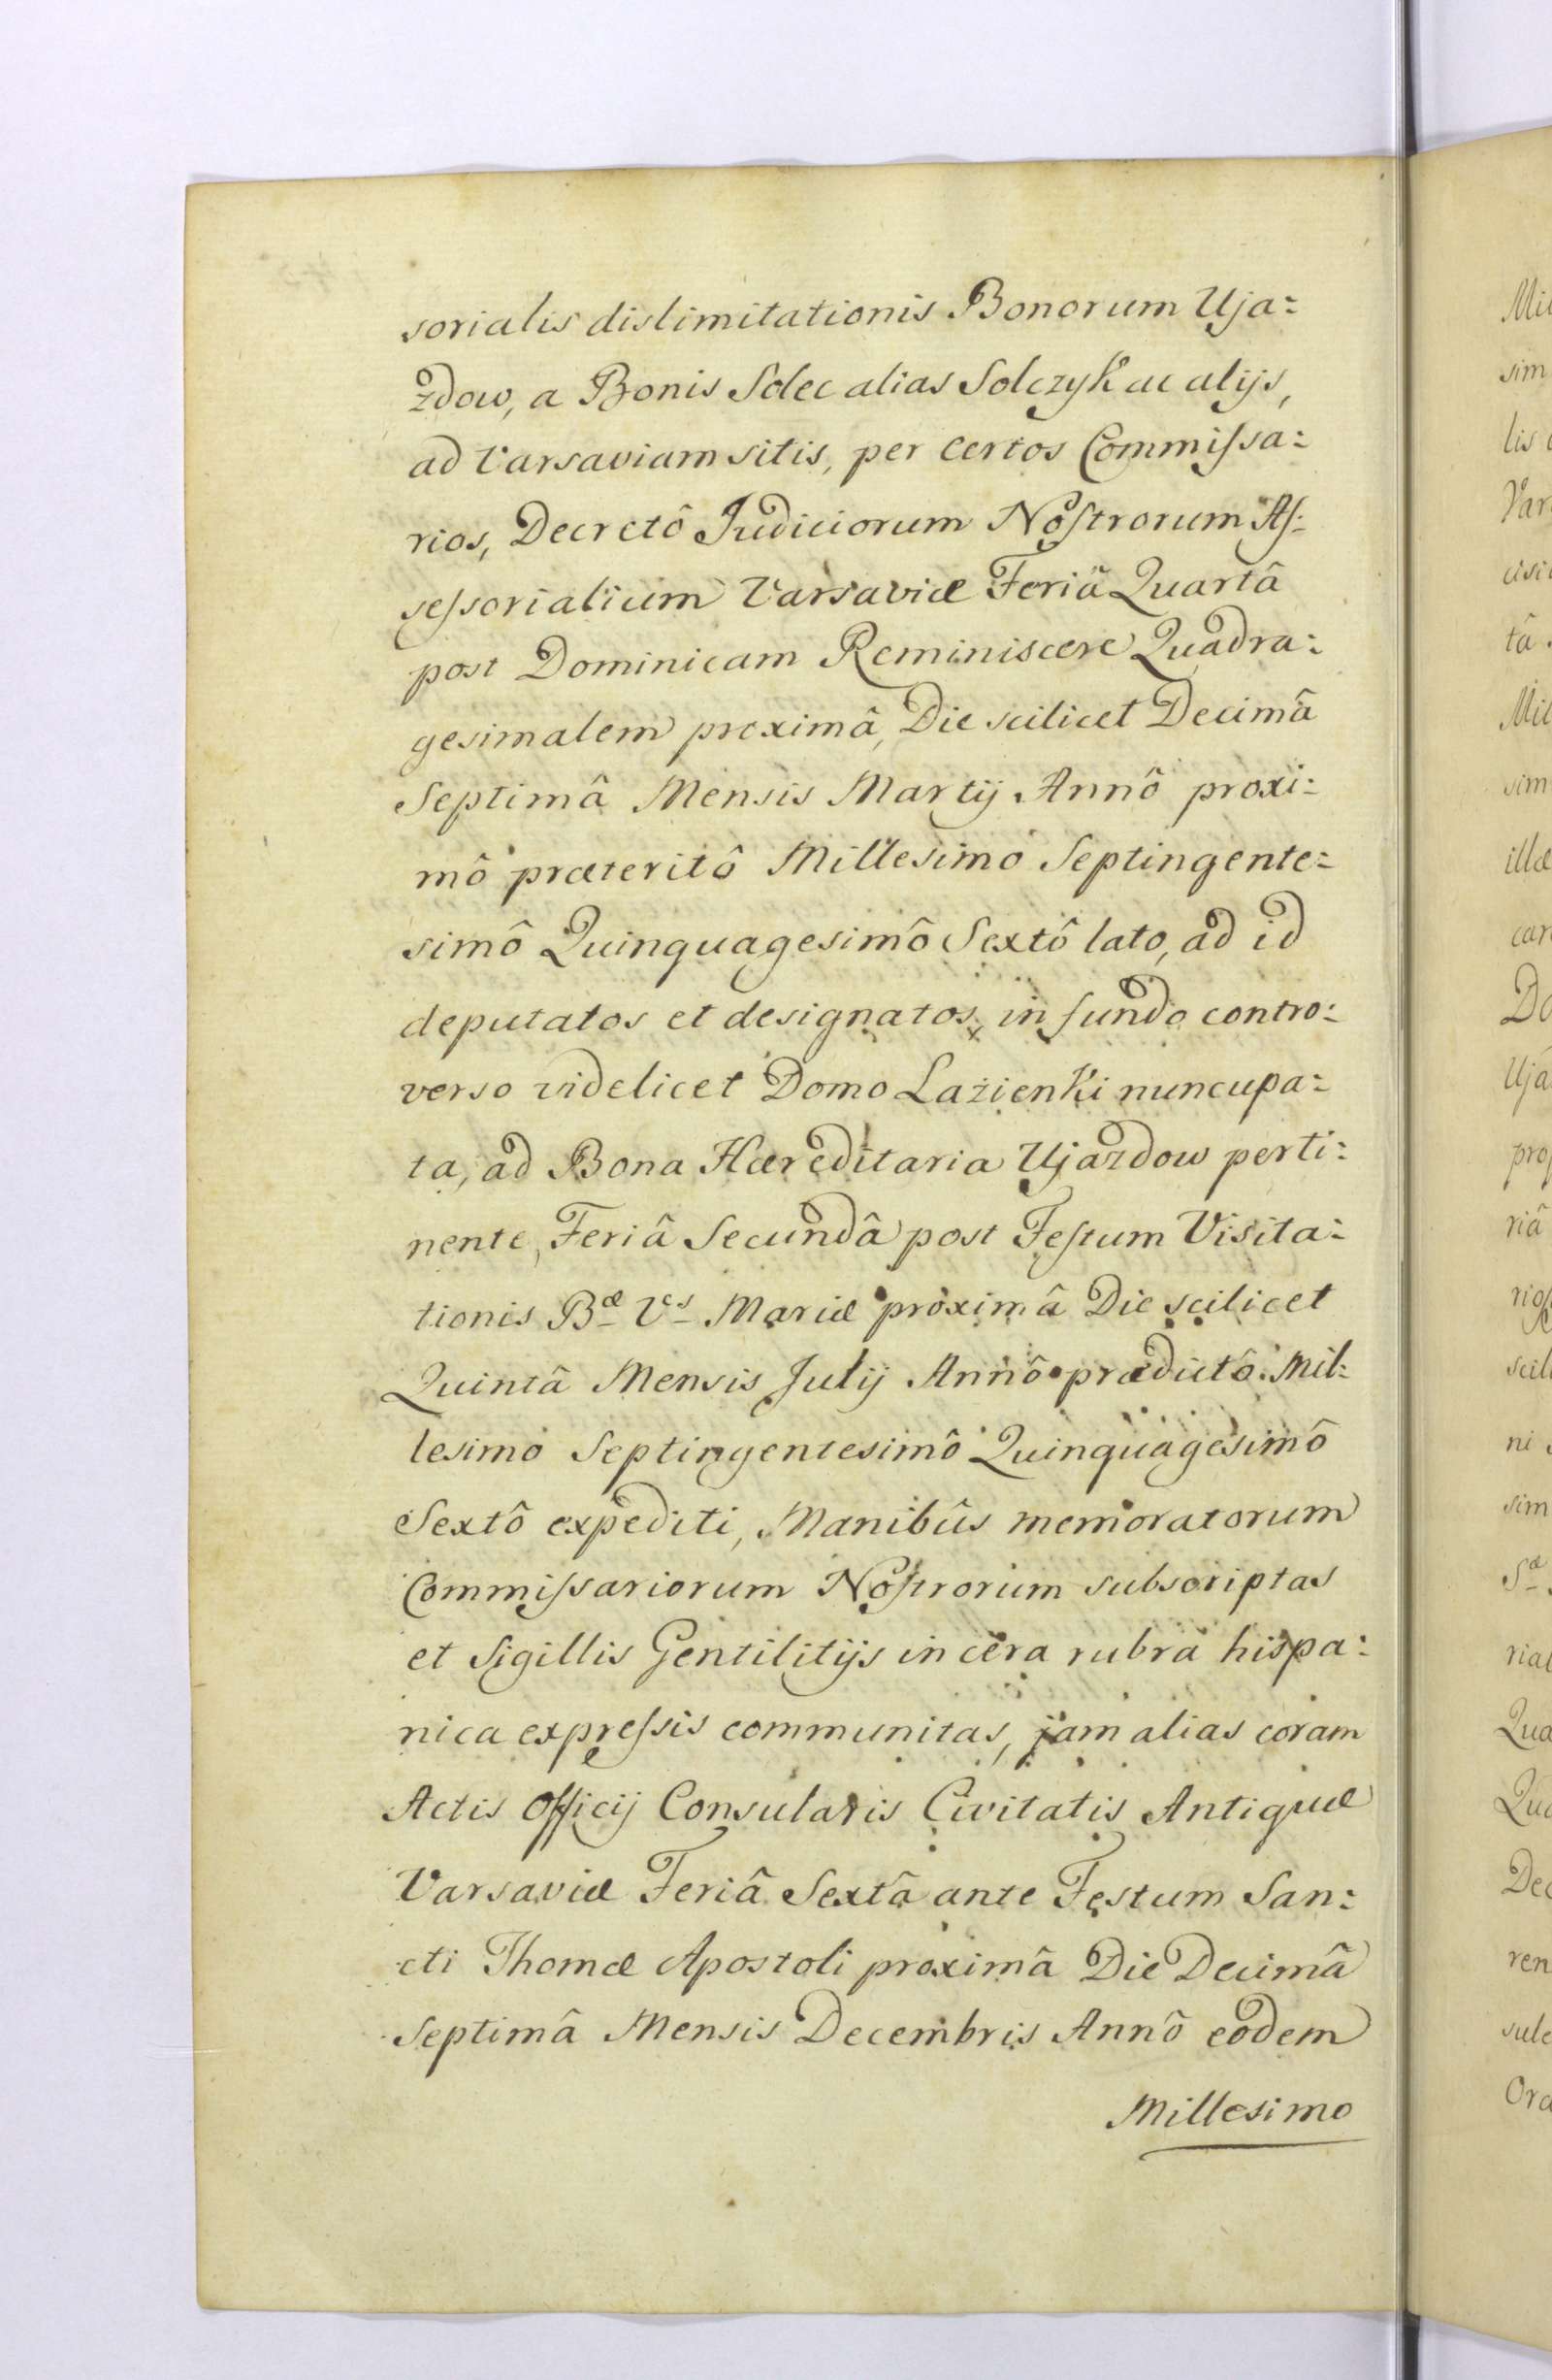 sorialis dislimitationis Bonorum Uja:
zdow, a Bonis Solec alias Solczyk ac alijs,
ad Varsaviam sitis, per certos Commiſsa:
rios, Decretô Judiciorum Noſtrorum Aſ:
seſsorialium Varsaviæ Feriâ Quartâ
post Dominicam Reminiscere Quadra:
gesimalem proximâ, Die scilicet Decimâ
Septimâ Mensis Martij Annô proxi:
mô præteritô Millesimo Septingente:
simô Quinquagesimô Sextô lato, ad id
deputatos et designatos, in fundo contro:
verso videlicet Domo Lazienki nuncupa:
ta, ad Bona Hæreditaria Ujazdow perti:
nente, Feriâ Secundâ post Feſtum Visita:
tionis Bæ Vis Mariæ proximâ Die scilicet
Quintâ Mensis Julij Annô prædictô Mil:
lesimo Septingentesimô Quinquagesimô
Sextô expediti, Manibûs memoratorum
Commiſsariorum Noſtrorum subscriptas
et Sigillis Gentilitijs in cera rubra hispa:
nica expreſsis communitas, jam alias coram
Actis Officij Consularis Civitatis Antiquæ
Varsaviæ Feriâ Sextâ ante Festum San:
cti Thomæ Apostoli proximâ Die Decimâ
Septimâ Mensis Decembris Annô eodem
Millesimo